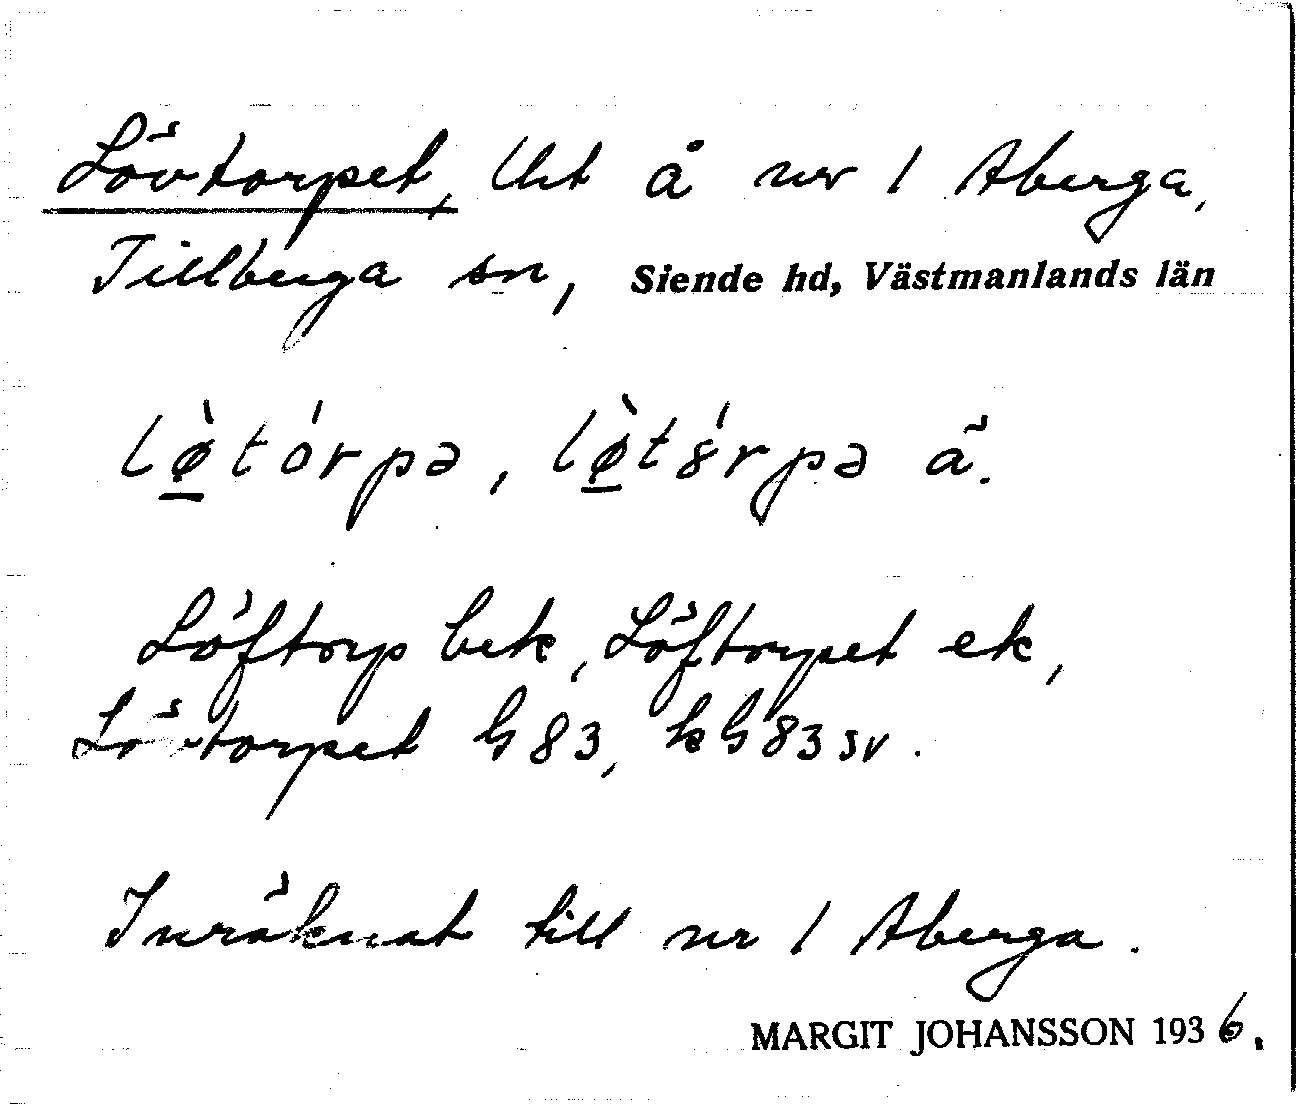 Lövtorpet, Uht å nr 1 Aberga,
Tillberga sn, Siende hd, Västmanlands län
lø̠̀tórpə, lø̠̀t8́rpə ã.
Löftorp bek, Löftorpet ek,
Lövtorpet G 83, kG 83 sv.
Inräknat till nr 1 Aberga.
MARGIT JOHANSSON 1936.